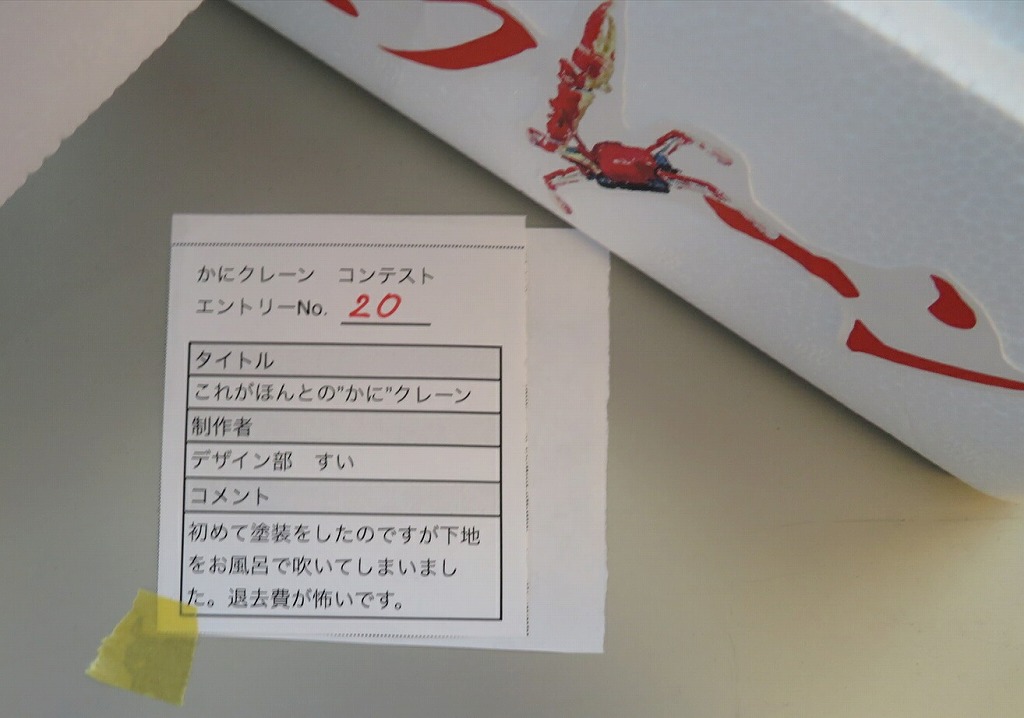 かにクレーン　コンテスト
エントリーNo. 20
タイトル
これがほんとの"かに"クレーン
制作者
デザイン部　すい
コメント
初めて塗装をしたのですが下地
をお風呂で吹いてしまいまし
た。退去費が怖いです。